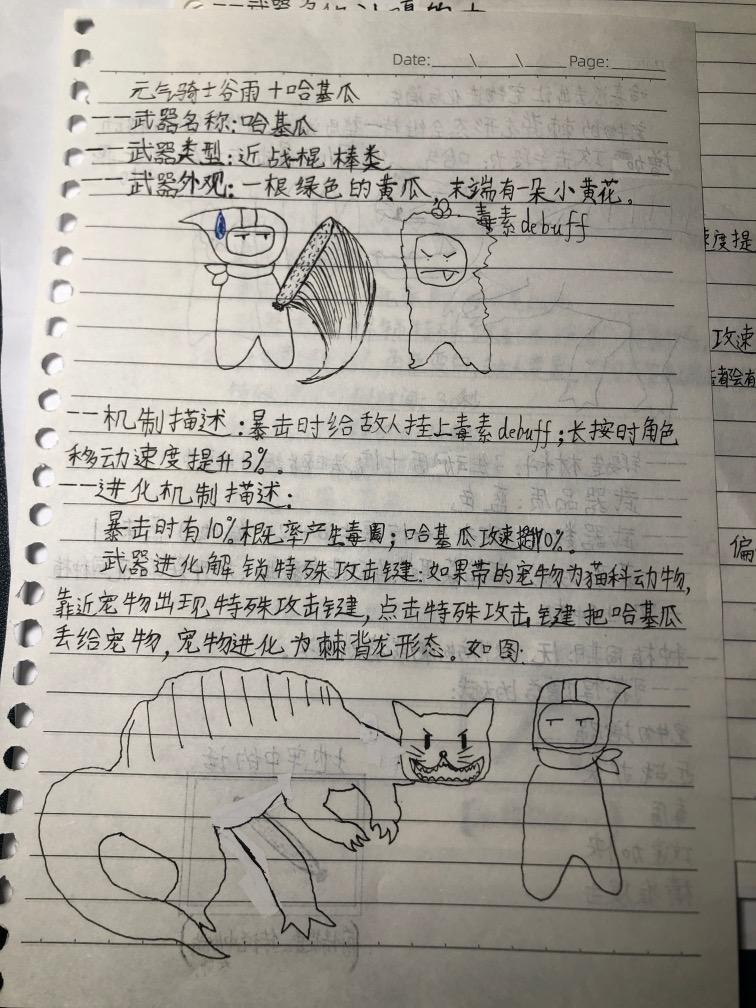 Date:____\____\____Page:____
元气骑士谷雨+哈基瓜
——武器名称:哈基瓜
——武器类型:近战棍棒类
——武器外观:一根绿色的黄瓜,末端有一朵小黄花。
毒素debuff
——机制描述:暴击时给敌人挂上毒素debuff;长按时角色
移动速度提升3%。
——进化机制描述:
暴击时有10%概率产生毒圈;哈基瓜攻速提10%。
武器进化解锁特殊攻击键:如果带的宠物为猫科动物,
靠近宠物出现特殊攻击键,点击特殊攻击键把哈基瓜
丢给宠物,宠物进化为棘背龙形态。如图:
速度提
攻速
都会有
偏